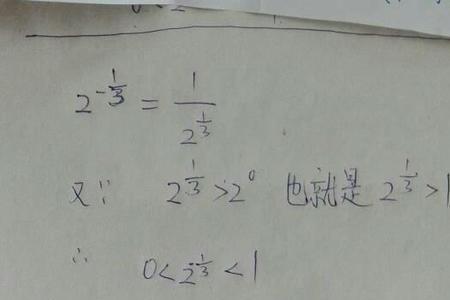 2^{-\frac{1}{3}} = \frac{1}{2^{\frac{1}{3}}}
又∵ 2^{\frac{1}{3}} > 2^0 也就是 2^{\frac{1}{3}} > 1
∴ 0 < 2^{-\frac{1}{3}} < 1